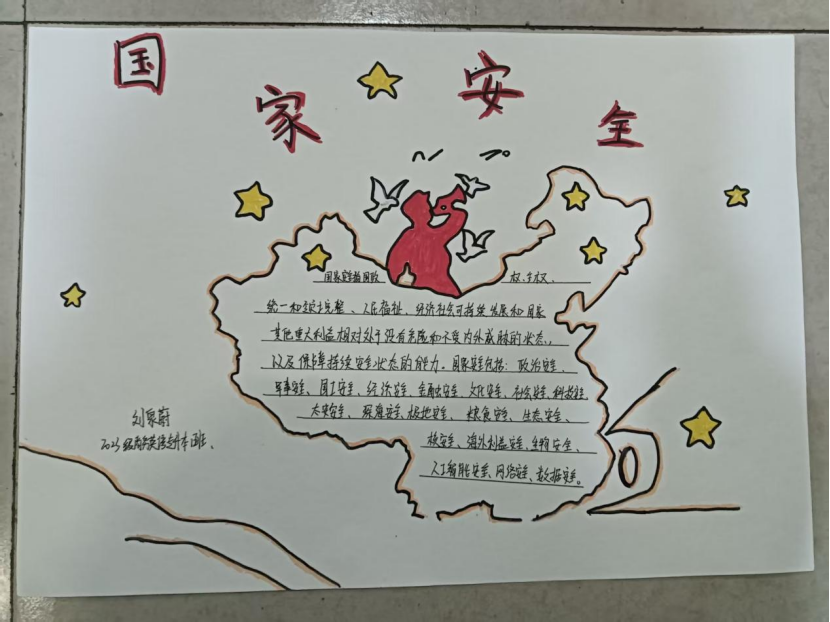 国家安全
国家安全指国政 权、主权、
统一和领土完整、人民福祉、经济社会可持续发展和国家
其他重大利益相对处于没有危险和不受内外威胁的状态、
以及保障持续安全状态的能力。国家安全包括：政治安全、
军事安全、国土安全、经济安全、金融安全、文化安全、社会安全、科技安全
太空安全、深海安全、极地安全、粮食安全、生态安全、
核安全、海外利益安全、生物安全、
人工智能安全、网络安全、数据安全。
2023级商务英语专升本2班、